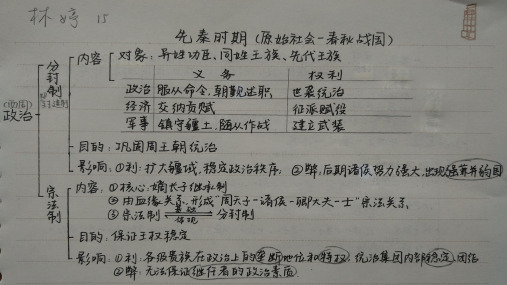 林婷 15
先秦时期(原始社会-春秋战国)
(西周)
政治
分封制
内容
对象:异姓功臣、同姓王族、先代王族
义务 权利
政治 服从命令,朝觐述职 世袭统治
经济 交纳贡赋 征派赋役
军事 镇守疆土,随从作战 建立武装
目的:巩固周王朝统治
影响:①利:扩大疆域,稳定政治秩序 ②弊:后期诸侯势力强大,出现强客并的困
宗法制
内容:①核心:嫡长子继承制
②由血缘关系,形成“周天子-诸侯-卿大夫-士”宗法关系
③宗法制 基础 体现 分封制
目的:保证王权稳定
影响:①利:各级贵族在政治上的垄断地位和特权,统治集团内部稳定、团结
②弊:无法保证继任者的政治素质